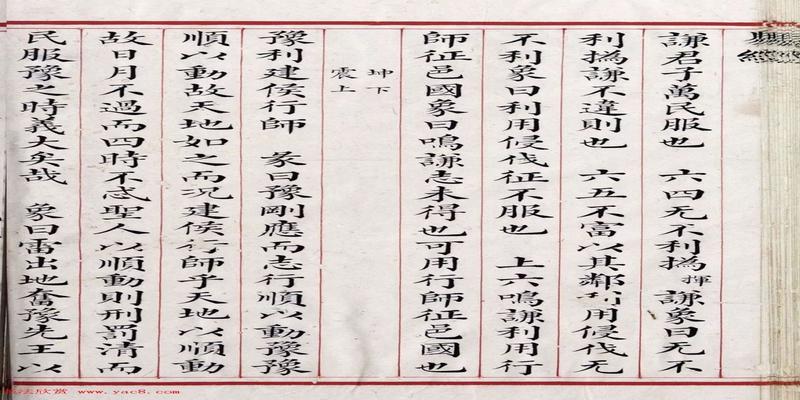 謙君子萬民服也 六四无不利撝揮謙象曰无不
利撝謙不違則也 六五不富以其鄰利用侵伐无
不利象曰利用侵伐征不服也 上六鳴謙利用行
師征邑國象曰鳴謙志未得也可用行師征邑國也
坤下
震上
豫利建侯行師 彖曰豫剛應而志行順以動豫豫
順以動故天地如之而况建侯行師乎天地以順動
故日月不過而四時不忒聖人以順動則刑罰清而
民服豫之時義大矣哉 象曰雷出地奮豫先王以
法欣赏 www.yac8.com